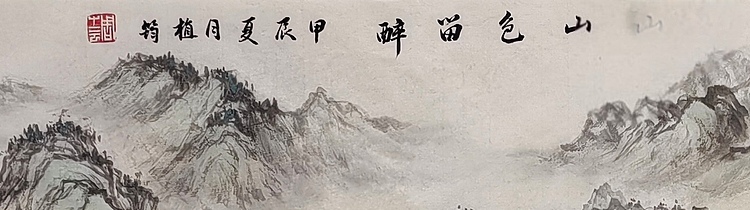 山山色留醉甲辰夏月植筠